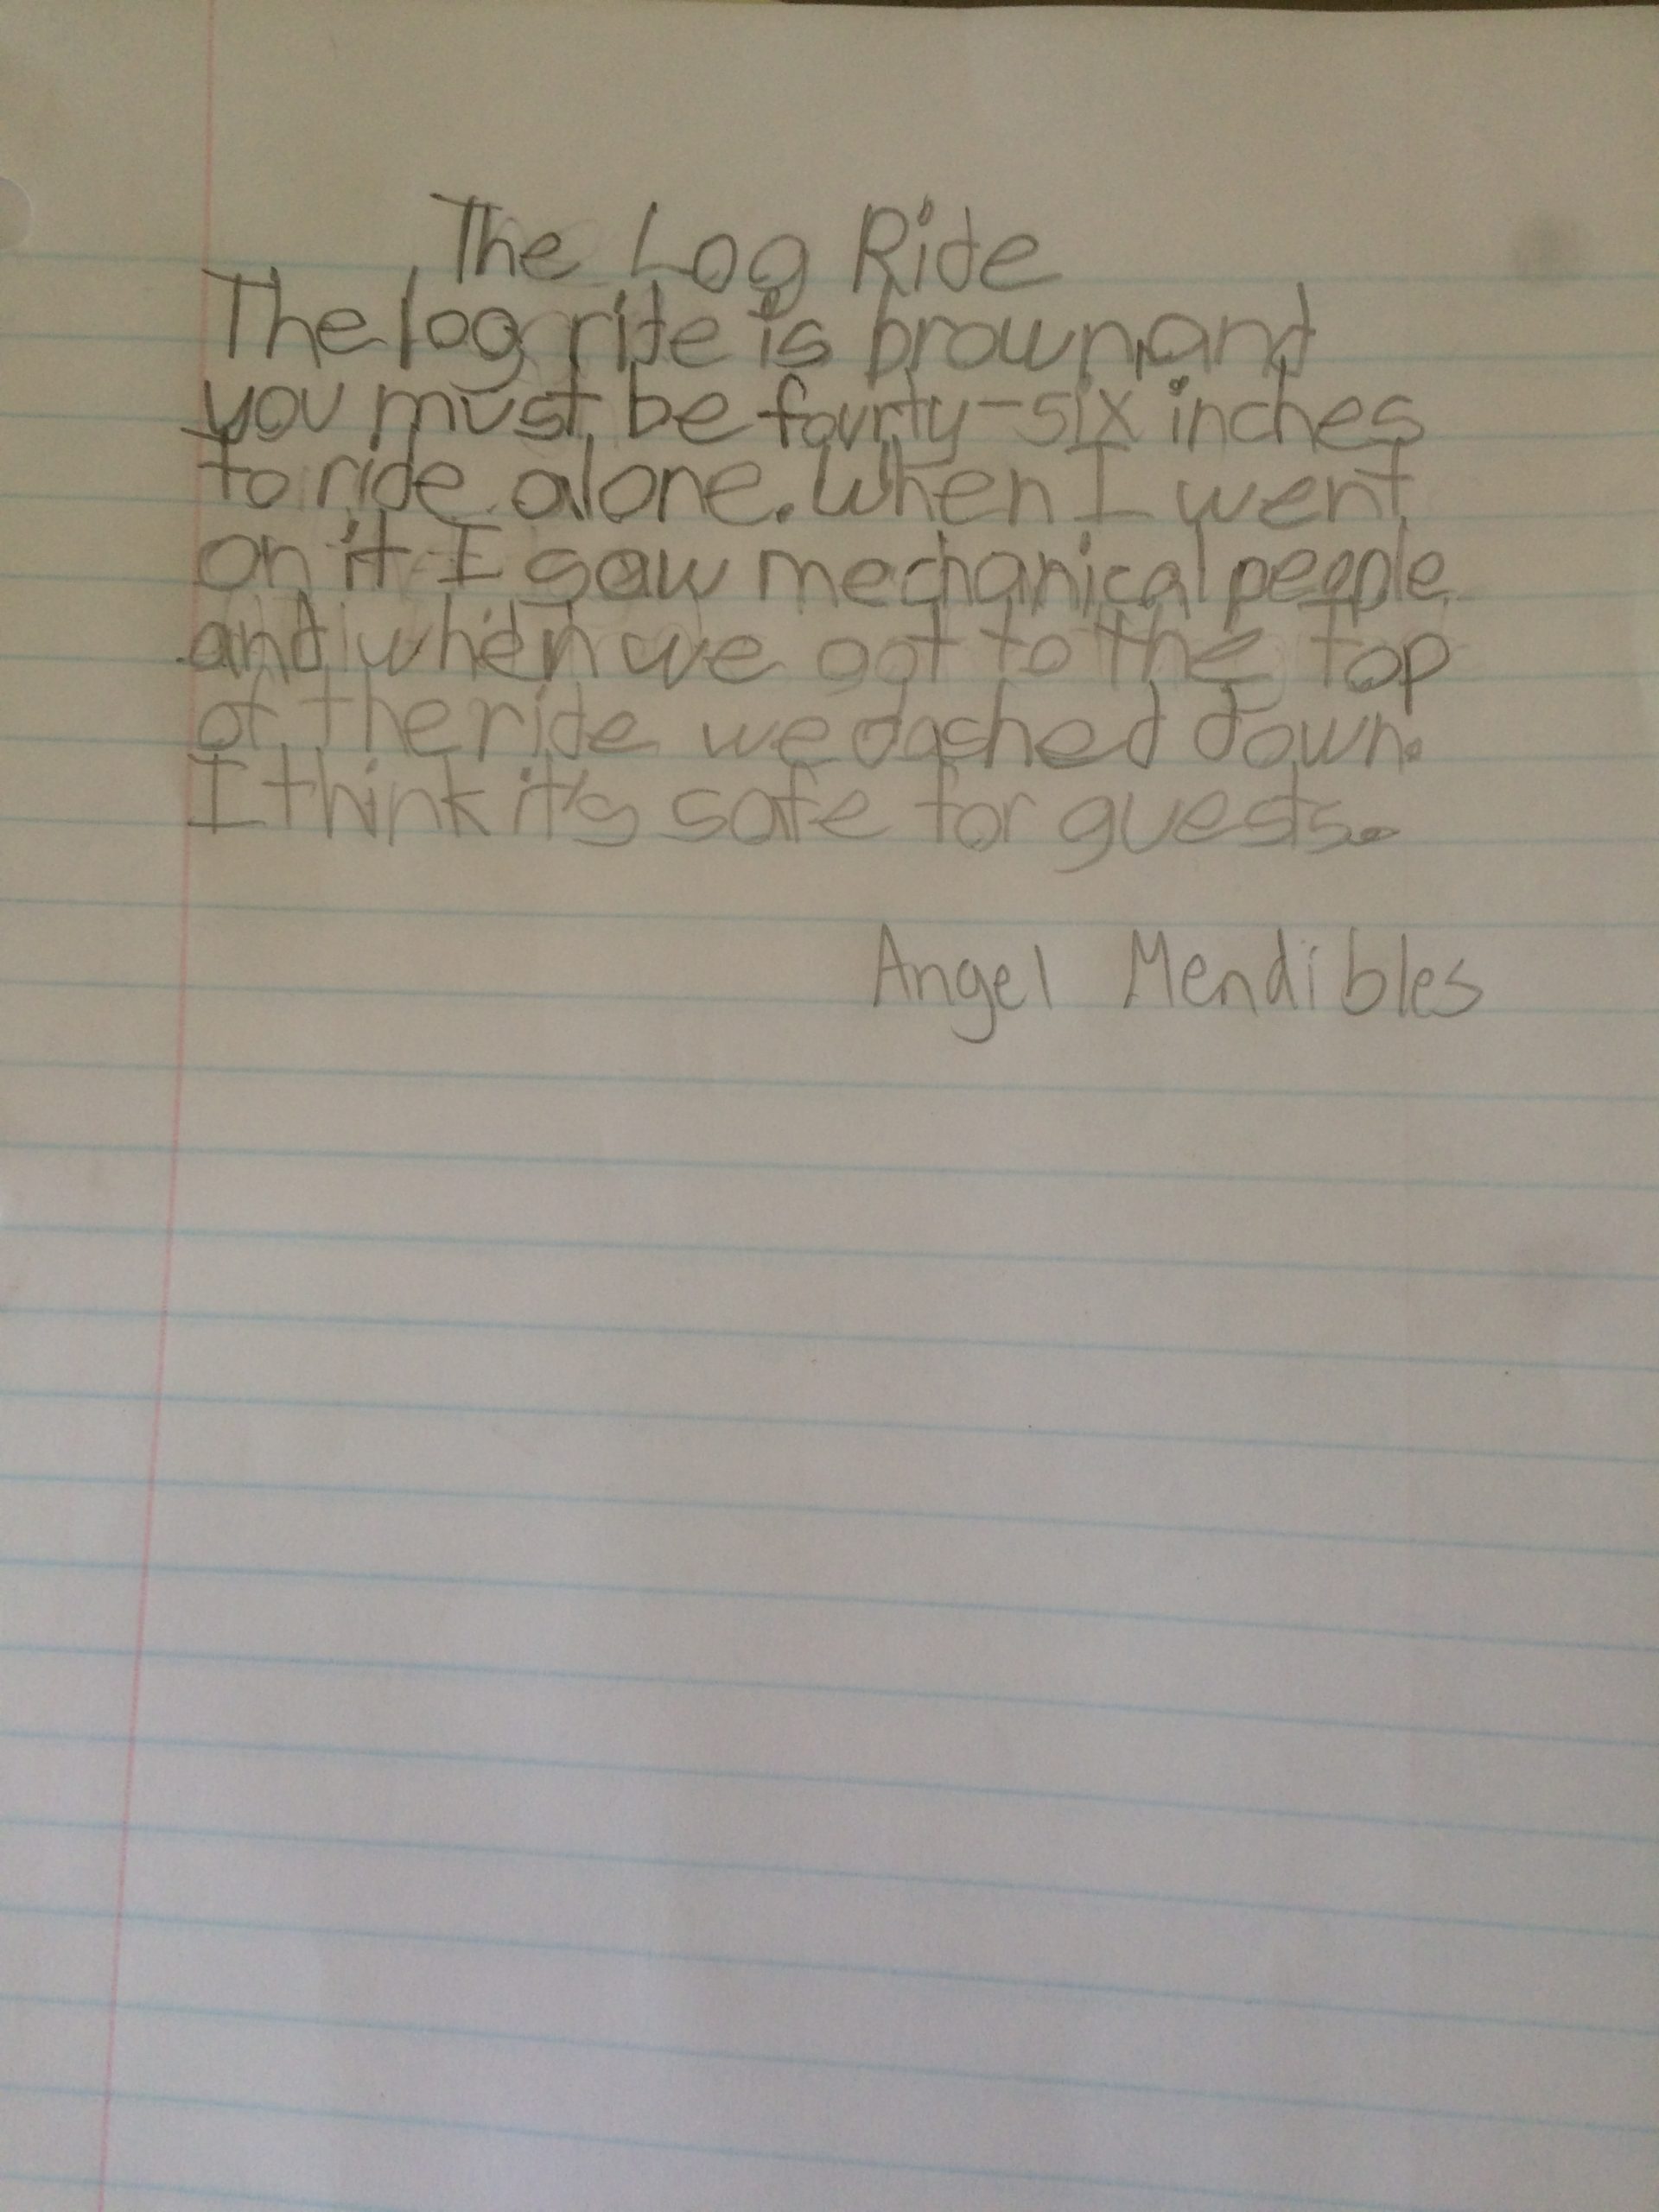 The Log Ride
The log ride is brown, and
you must be fourty-six inches
to ride alone. When I went
on it I saw mechanical people
and when we got to the top
of the ride we dashed down.
I think it's safe for guests.
Angel Mendibles